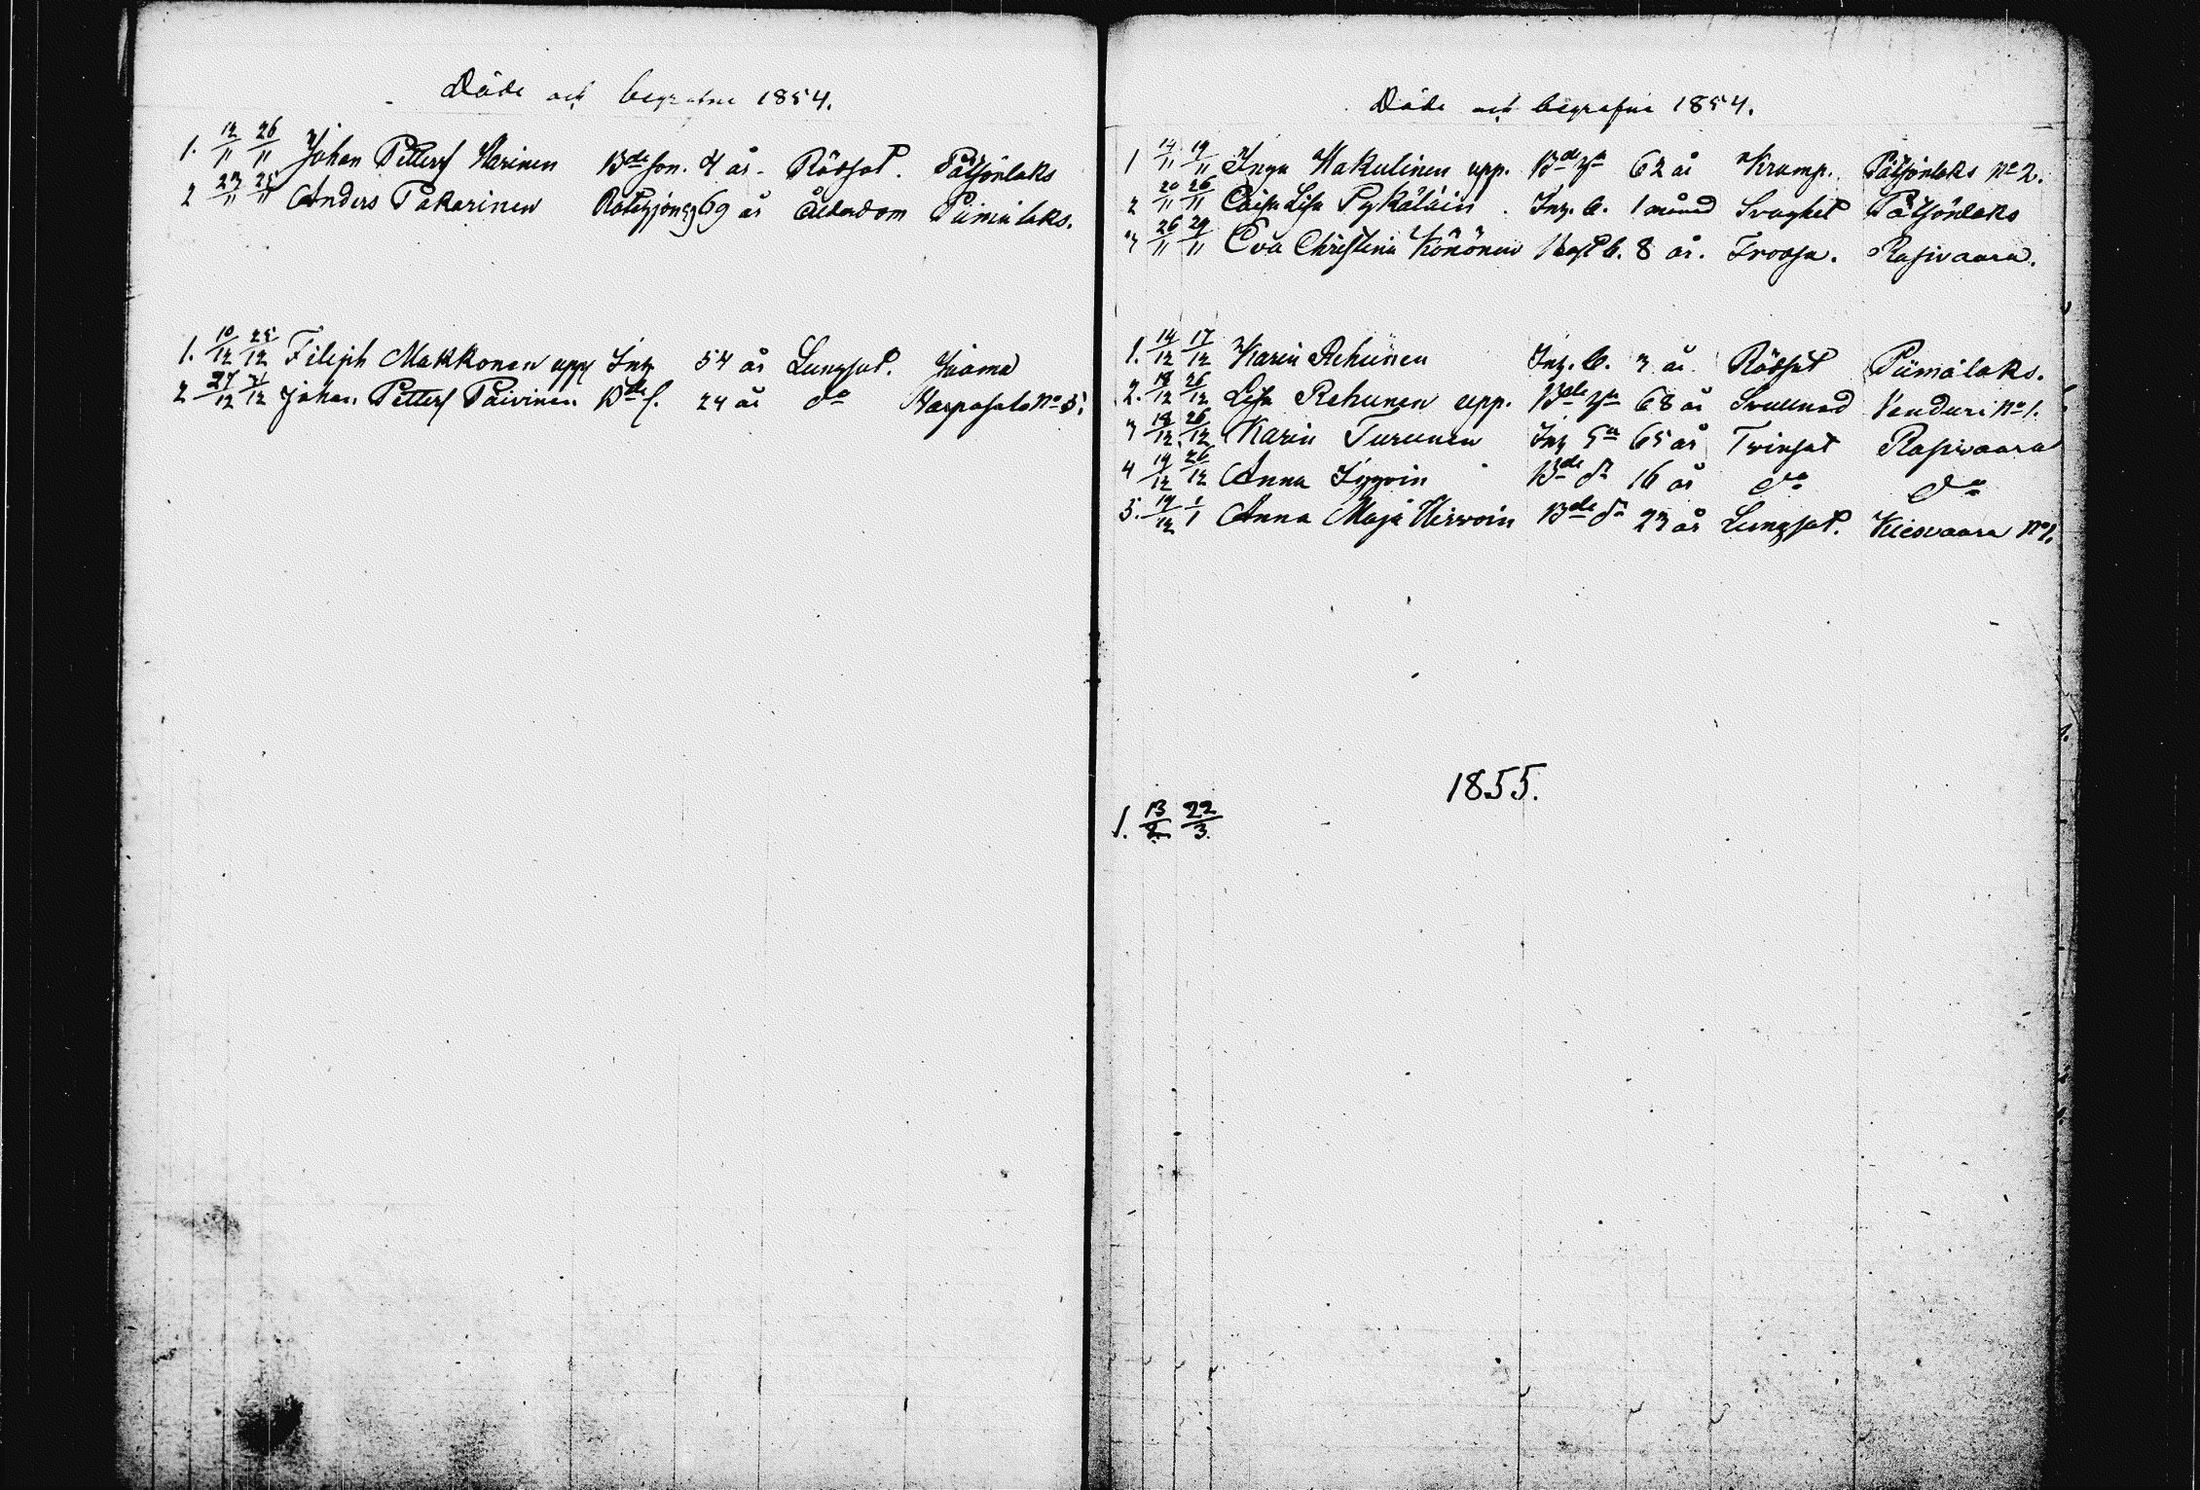 Döde och begrafne 1854.
1. 12/11 26/11 Johan Petter Varinen Bde son. 4 år. Rödsot. Pötsönlaks
2 23/11 25/11 Anders Pakarinen 69 år Ålderdom Piimälaks.
1. 10/12 25/12 Filip Makkonen Inh 54 år Lungsot.
2 27/12 31/12 Johan Petter Päivinen Bde s. 24 år do Varpasalo No 5.
Döde och begrafne 1854.
1 14/11 19/11 Inga Hakulinen upp. Bde 62 år Kramp. Pötsönlaks No 2.
2 20/11 26/11 Caisa Lisa Pykäläin. Inh. b. 1 månad Svaghet Pötsönlaks
3 26/11 29/11 Eva Christina Könönen b. 8 år. Trossa. Rasivaara.
1. 14/12 17/12 Karin Rehunen Inh. b. 3 år. Rödsot Piimälaks.
2. 18/12 26/12 Lisa Rehunen upp. Bde 68 år Svullnad No 1.
3 18/12 26/12 Karin Turunen Inh 65 år Tvinsot Rasivaara
4 19/12 26/12 Anna Bde dr 16 år do do
5. 19/12 1/1 Anna Maja Hirvoin Bde dr 23 år Lungsot. No 1.
1855.
1. 13/2. 22/3.